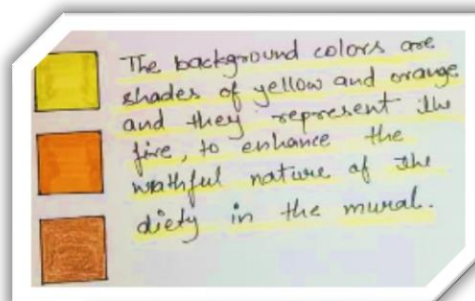 The background colors are
shades of yellow and orange
and they represent the
fire, to enhance the
wrathful nature of the
diety in the mural.